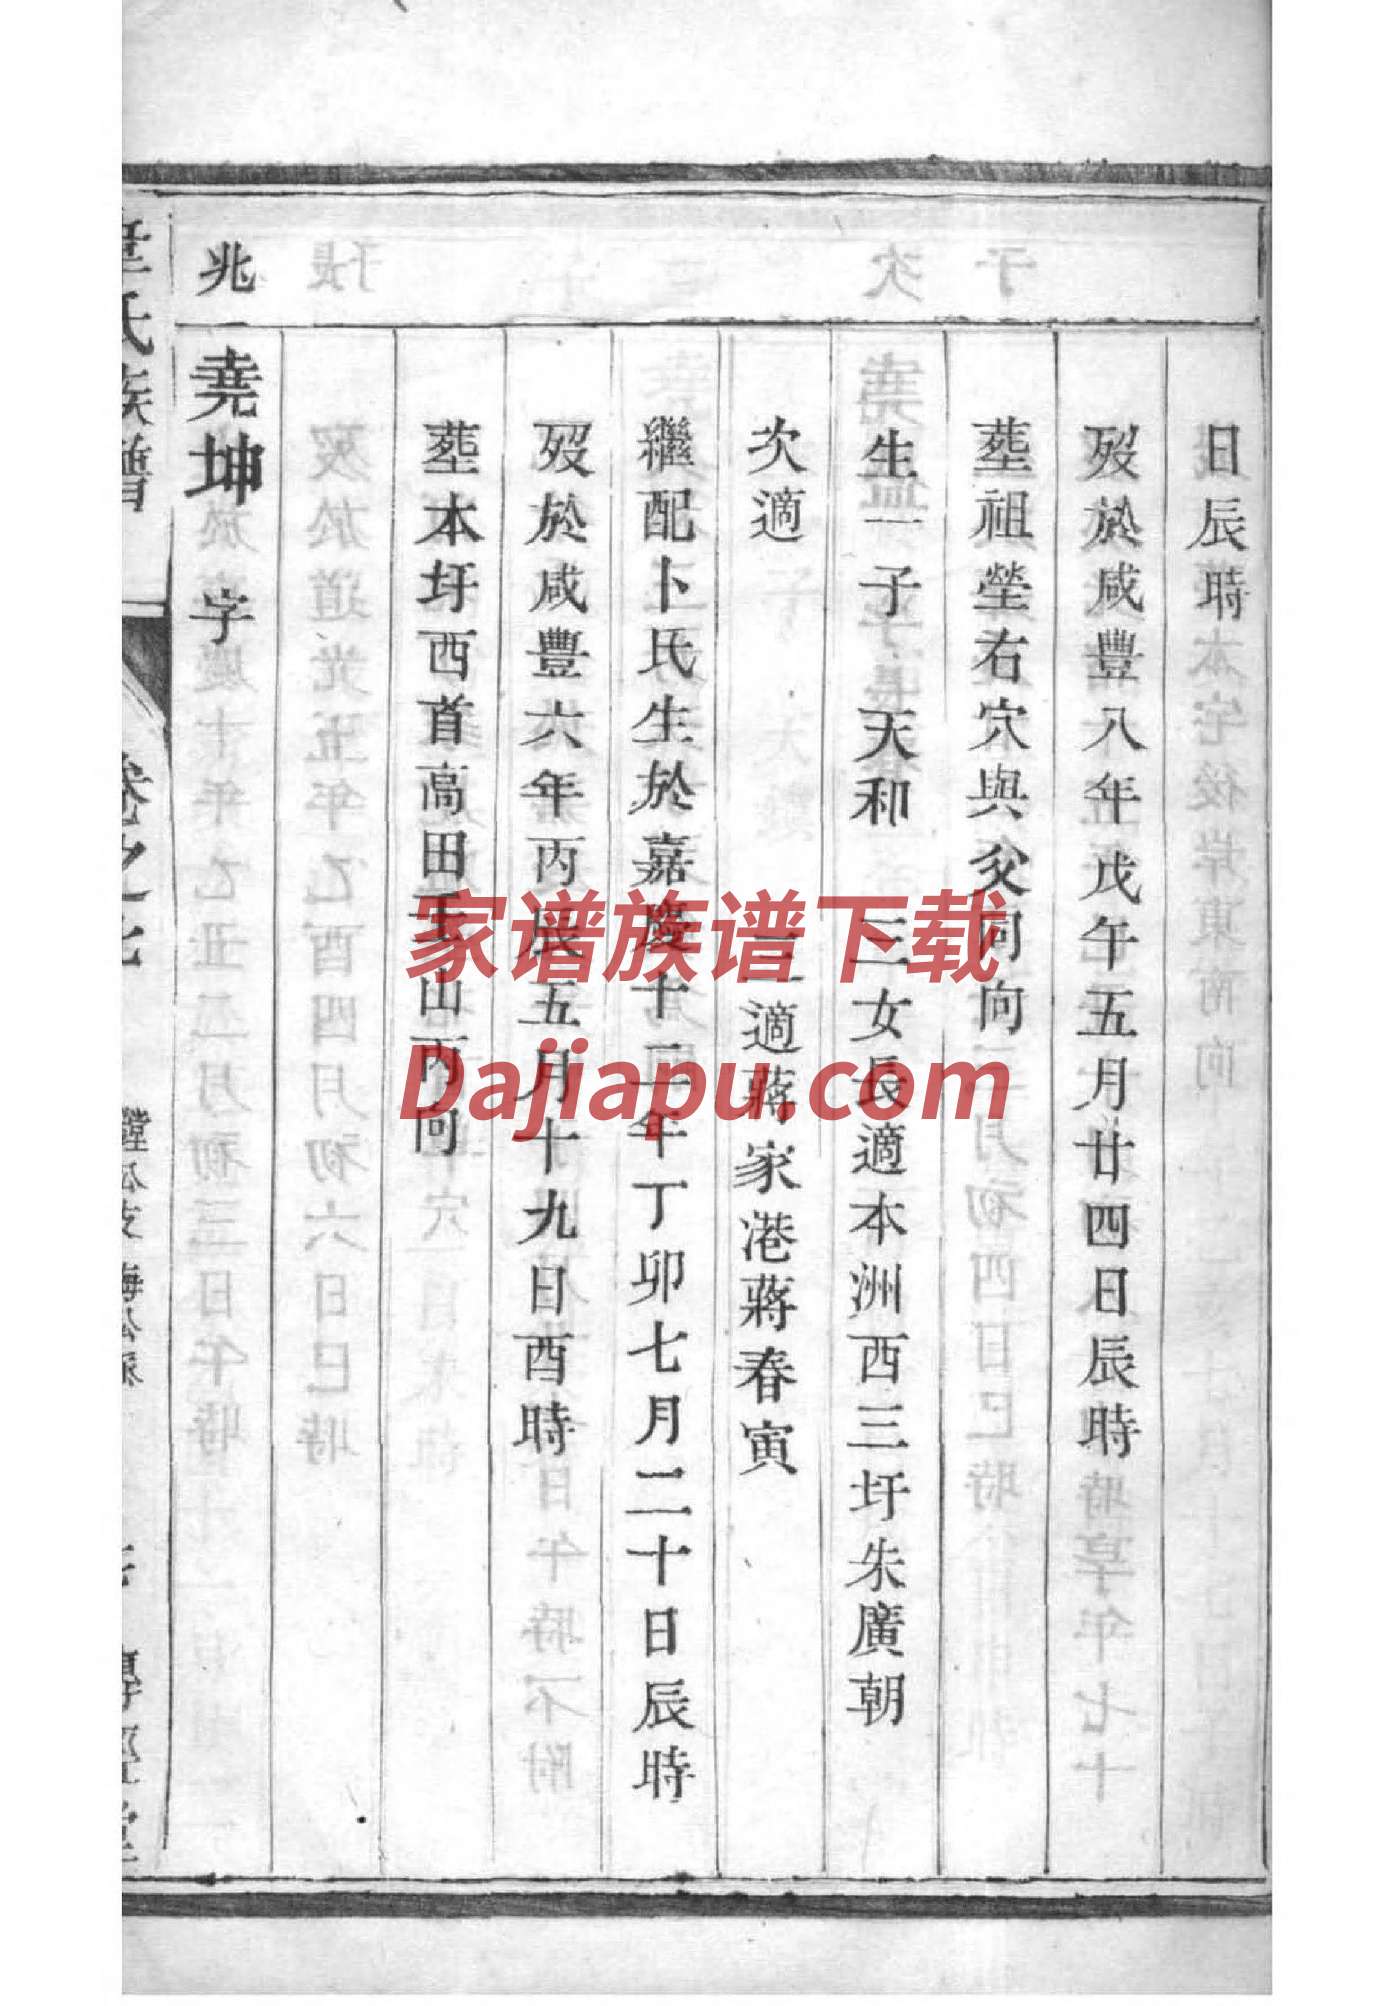 日辰時
歿於咸豐八年戊午五月廿四日辰時
塟祖塋右穴與父同向
生一子 天和 三女長適本洲西三圩朱廣朝
次適 三適蔣家港蔣春寅
繼配卜氏生於嘉慶十二年丁卯七月二十日辰時
歿於咸豐六年丙辰五月十九日酉時
塟本圩西首高田壬山丙向
兆一 堯坤 字
氏族譜 卷之七
家谱族谱下载
Dajiapu.com